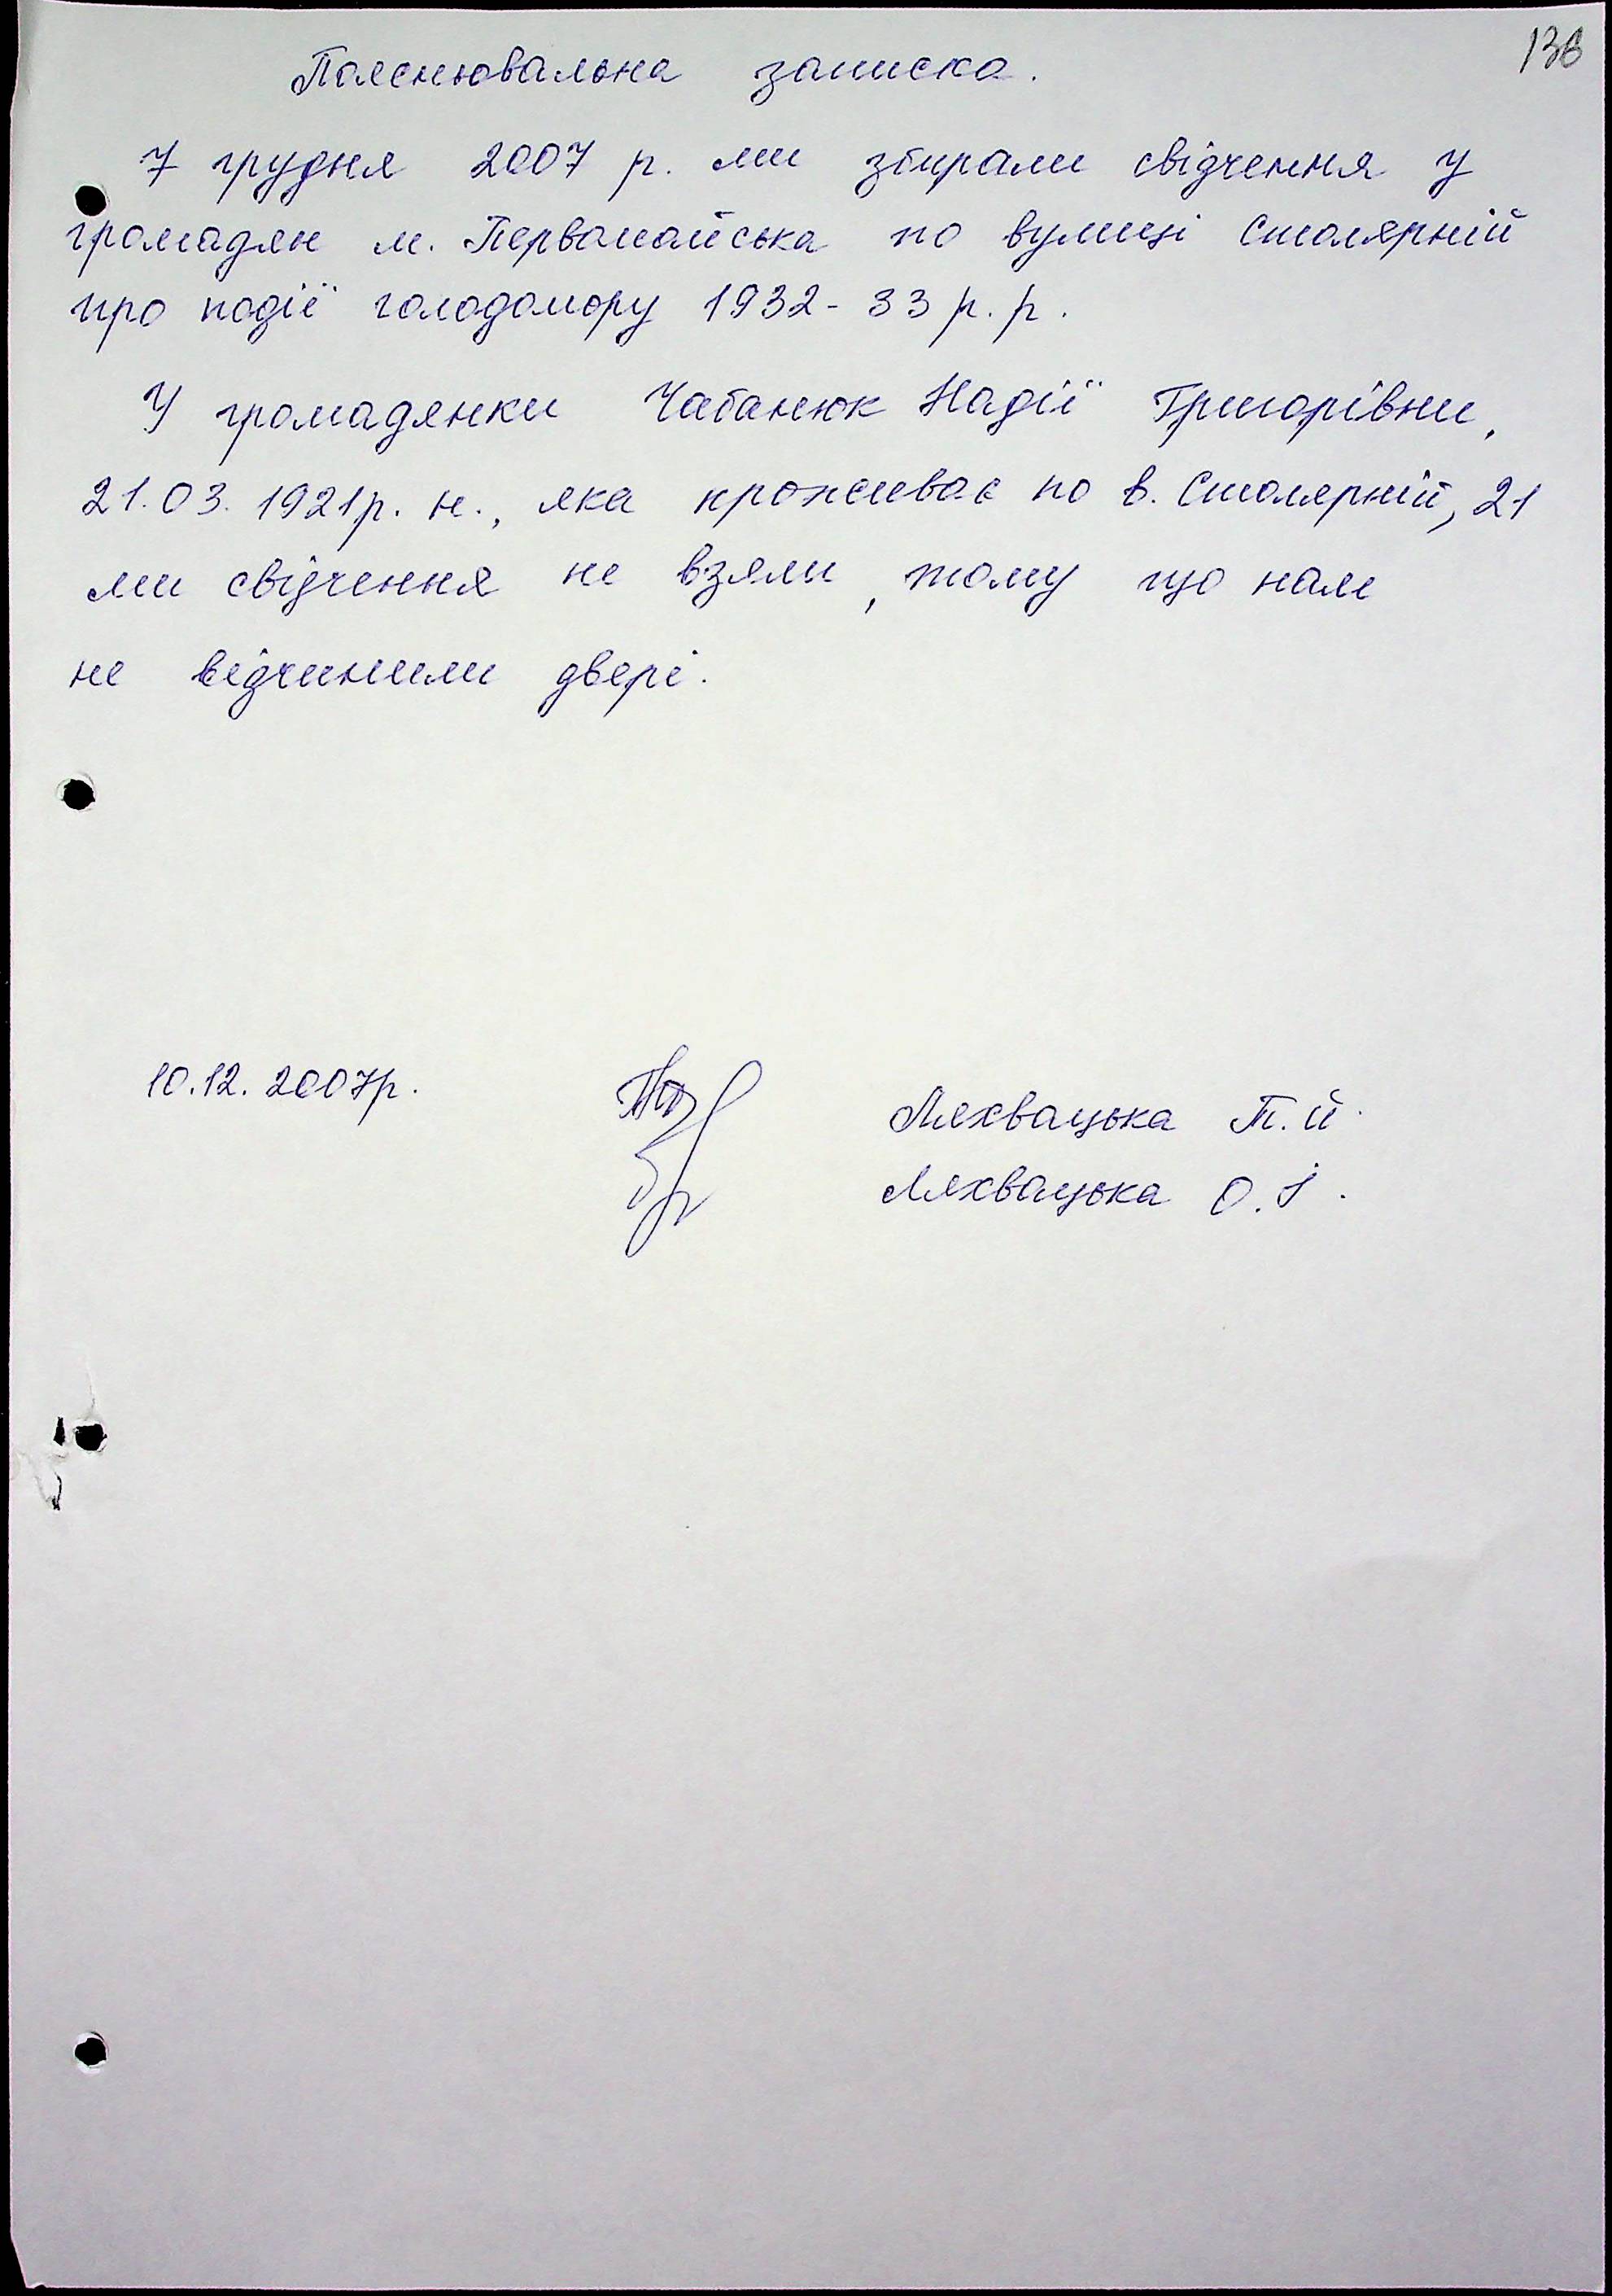 136
Пояснювальна записка.
7 грудня 2007 р. ми збирали свідчення у
громадян м. Первомайська по вулиці Столярній
про події голодомору 1932-33 р.р.
У громадянки Чабанюк Надії Григорівни,
21.03.1921р. н., яка проживає по в. Столярній, 21
ми свідчення не взяли, тому що нам
не відчинили двері.
10.12.2007р.
Ляхвацька Т.Й.
Ляхвацька О.І.